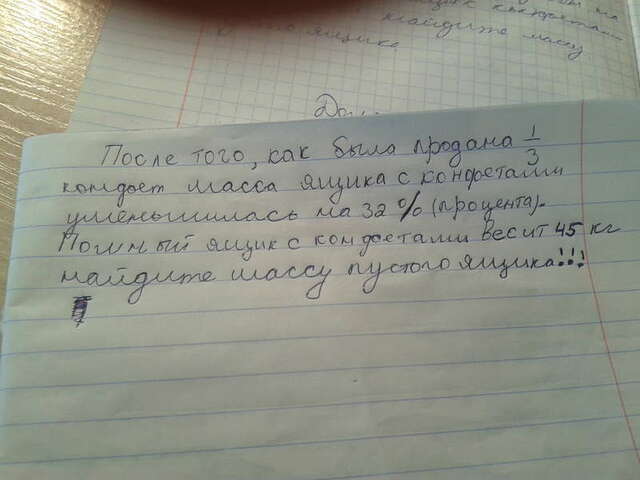 ящик конфетами
найдите массу
ящика.
После того, как была продана 1/3
конфет масса ящика с конфетами
уменьшилась на 32 % (процента).
Полный ящик с конфетами весит 45 кг
найдите массу пустого ящика!!!